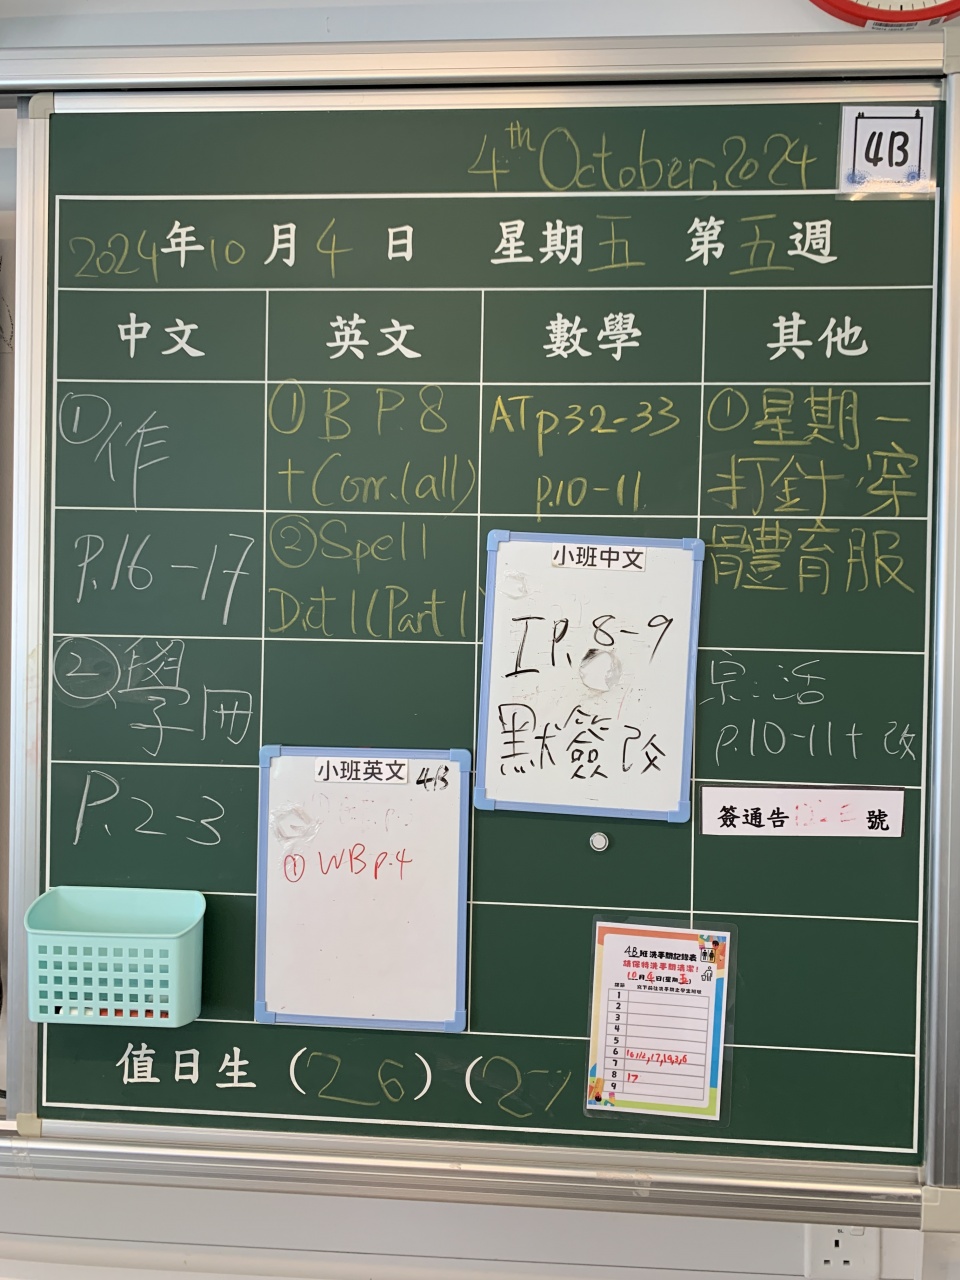 4th October, 2024
4B
2024年10月4日 星期五 第五週
中文 英文 數學 其他
①作
P.16-17
②學冊
P.2-3
①B P.8
+Corr.(all)
②Spell
Dict 1(Part 1
AT p.32-33
p.10-11
①星期一
打針,穿
體育服
p.10-11+改
小班中文
P.8-9
默簽改
小班英文 4B
①WB p.4
簽通告 號
4B班洗手間記錄表
請保持洗手間清潔!
10月4日(星期五)
1
2
3
4
5
6
7
8 17
9
值日生(26)(27